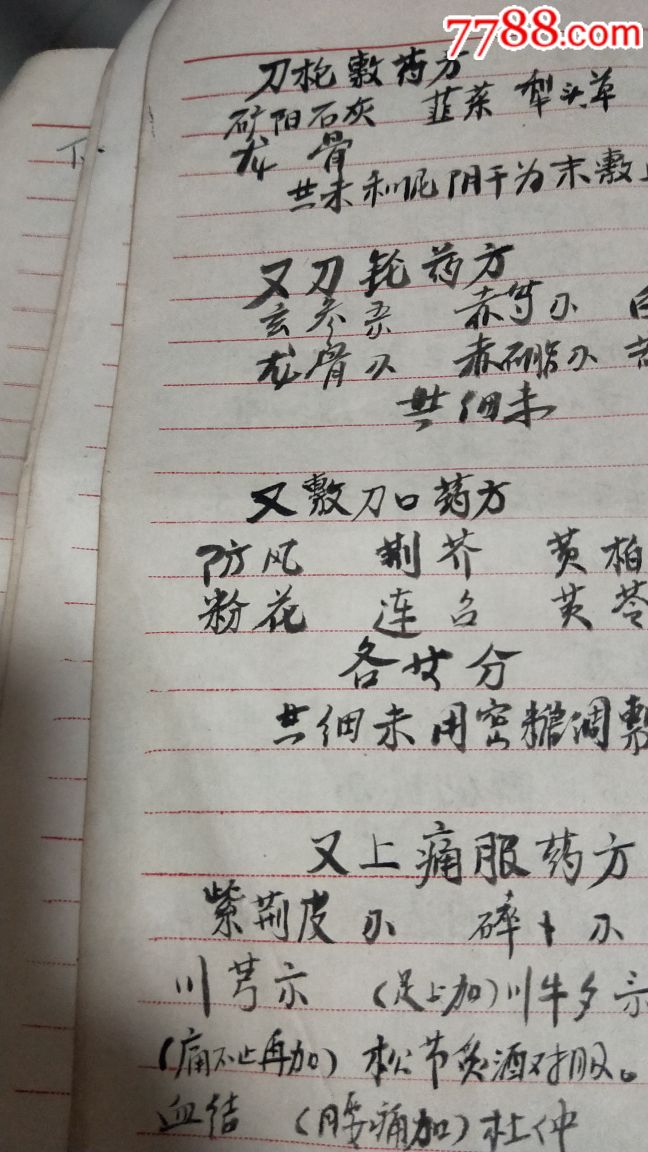 7788.com
刀枪敷药方
矿阳石灰 韮菜 犁头草
龙骨
共末和泥阴干为末敷上
又刀轮药方
玄参 赤芍 白
龙骨 赤石脂
共细末
又敷刀口药方
防风 荆芥 黄柏
粉花 连召 黄芩
各廿分
共细末用密糖调敷
又上痛服药方
紫荆皮 碎卜
川芎 (足上加)川牛夕
(痛不止再加)松节炙酒对服。
血结 (腰痛加)杜仲